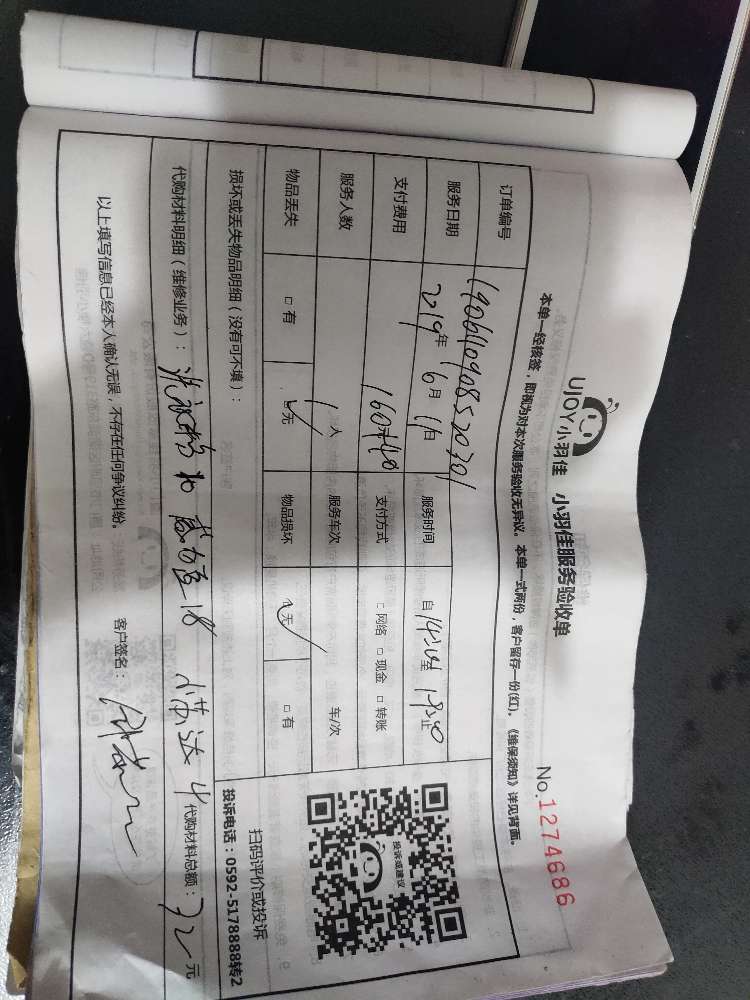 UJOY小羽佳 小羽佳服务验收单
No.1274686
本单一经核签，即视为对本次服务验收无异议。本单一式两份，客户留存一份(红)。《维保须知》详见背面。
订单编号
服务日期 2019年 6月 11日 服务时间 自 至 止
支付费用 支付方式 □网络 □现金 □转账
服务人数 1人 服务车次 车/次
物品丢失 □有 ☑无 物品损坏 ☑无 □有
损坏或丢失物品明细（没有可不填）：
代购材料明细（维修业务）： 代购材料总额：32元
以上填写信息已经本人确认无误，不存在任何争议纠纷。 客户签名：
投诉或建议
扫码评价或投诉
投诉电话：0592-5178888转2